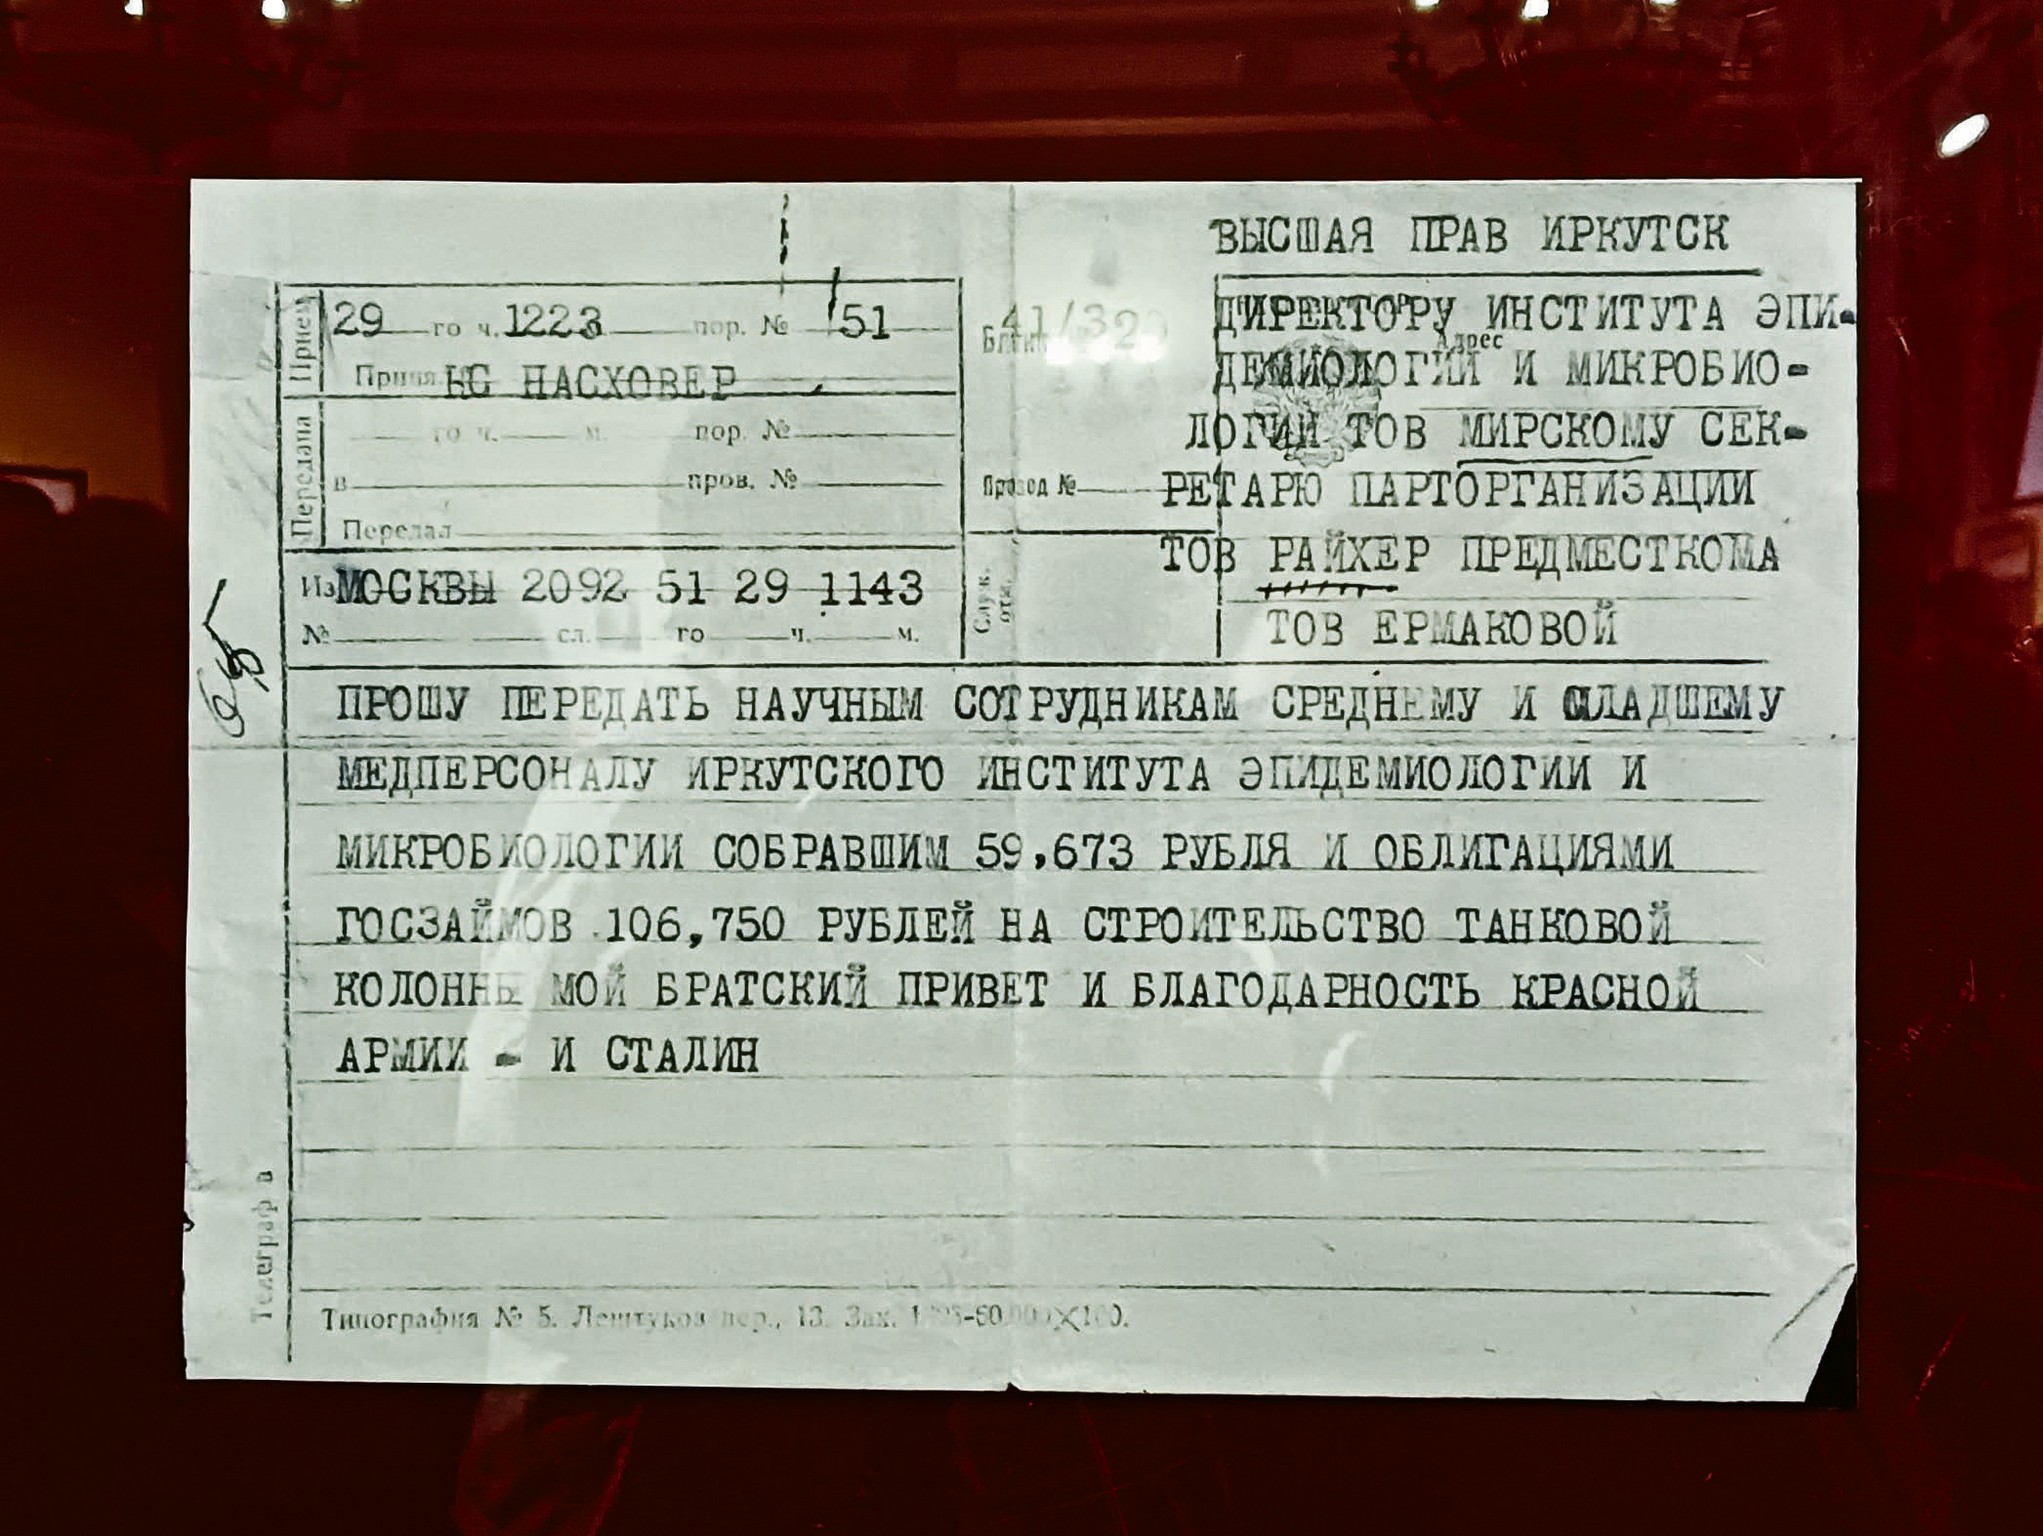 ВЫСШАЯ ПРАВ ИРКУТСК
Прием
29 го ч. 1223 пор. № 51
КС НАСХОВЕР
Передана
го ч. м. пор. №
в пров. №
Передал
Из МОСКВЫ 2092 51 29 1143
№ сл. го ч. м.
41/32
Провод №
Служ. отм.
Адрес
ДИРЕКТОРУ ИНСТИТУТА ЭПИ-
ДЕМИОЛОГИИ И МИКРОБИО-
ЛОГИИ ТОВ МИРСКОМУ СЕК-
РЕТАРЮ ПАРТОРГАНИЗАЦИИ
ТОВ РАЙХЕР ПРЕДМЕСТКОМА
ТОВ ЕРМАКОВОЙ
ПРОШУ ПЕРЕДАТЬ НАУЧНЫМ СОТРУДНИКАМ СРЕДНЕМУ И МЛАДШЕМУ
МЕДПЕРСОНАЛУ ИРКУТСКОГО ИНСТИТУТА ЭПИДЕМИОЛОГИИ И
МИКРОБИОЛОГИИ СОБРАВШИМ 59,673 РУБЛЯ И ОБЛИГАЦИЯМИ
ГОСЗАЙМОВ 106,750 РУБЛЕЙ НА СТРОИТЕЛЬСТВО ТАНКОВОЙ
КОЛОННЫ МОЙ БРАТСКИЙ ПРИВЕТ И БЛАГОДАРНОСТЬ КРАСНОЙ
АРМИИ - И СТАЛИН
Телеграф в
Типография № 5. Лештуков пер., 13. Зак.